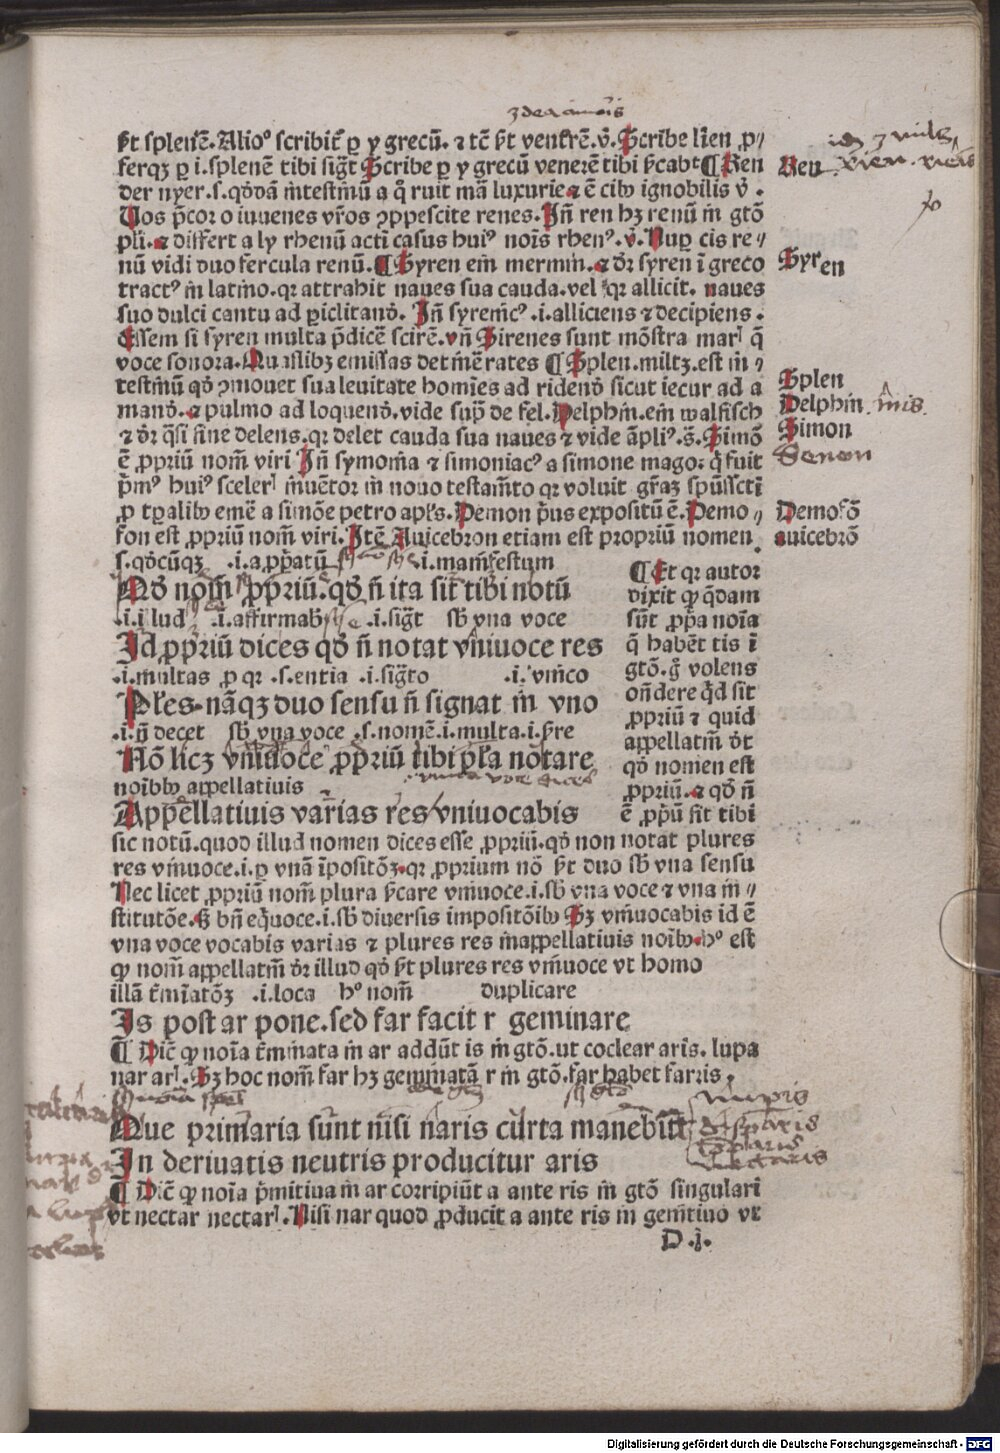 f̄t splenē. Alioꝰ scribit̄ ꝑ y grecū. ⁊ tc̄ f̄t ventrē. v̄. Scribe lien ꝓ/
ferqꝫ ꝑ i. splenē tibi sig̅t Scribe ꝑ y grecū venerē tibi f̄cabt ¶ Ren
der nyer. s. qd̄dā intestinū a q̄ ruit mā luxurie ⁊ ē cibꝰ ignobilis v̄.
Uos p̄cor o iuuenes vr̄os ꝯpescite renes. Iñ ren hꝫ renū in gtō
pli. ⁊ differt a ly rhenū acti casus huiꝰ nois rhenꝰ. v̄. Nuꝑ cis re/
nū vidi duo fercula renū. ¶ Syren em mermin. ⁊ dr̄ syren ī greco
tractꝰ in latino. qr attrahit naues sua cauda. vel qr allicit. naues
suo dulci cantu ad ꝑiclitand̄. Iñ syrenicꝰ .i. alliciens ⁊ decipiens.
Essem si syren multa p̄dicē scirē. vñ Sirenes sunt mōstra marꝭ q̄
voce sonora. Quaslibꝫ emissas detinē rates ¶ Splen. miltꝫ. est in/
testinū qd̄ ꝯmouet sua leuitate homies ad ridend̄ sicut iecur ad a
mand̄. ⁊ pulmo ad loquend̄. vide sup̄ de fel. Delphin. em walfisch
⁊ dr̄ q̄si sine delens. qr delet cauda sua naues ⁊ vide āpliꝰ. s̄. Simō
ē ꝓpriū nom̄ viri Iñ symonia ⁊ simoniacꝰ a simone mago: q̄ fuit
p̄mꝰ huiꝰ scelerꝭ inuētor in nouo testamēto qr voluit gr̄aꝫ spūssctī
ꝓ tꝑalibꝰ emē a simōe petro apl's. Demon p̄us expositū ē. Demo/
fon est ꝓpriū nomen viri. Itē Auicebron etiam est propriū nomen.
Ren
Syren
Splen
Delphin
Simon
Demon
Demofō
auicebrō
s. qd̄cūqꝫ .i. appatū .i. manifestum
Qd̄ nom̄ ꝓpriū. qd̄ ñ ita sit tibi notū
.i. illud .i. affirmabꝭ .i. sig̅t sb̄ vna voce
Id ꝓpriū dices qd̄ ñ notat vniuoce res
.i. multas ꝓ qr .s. entia .i. sig̅to .i. vnico
Ples. nāqꝫ duo sensu ñ signat in vno
.i. ñ decet sb̄ vna voce .s. nomē .i. multa .i. f̄re
Nō licꝫ vniuoce ꝓpriū tibi pl̄a notare
noībꝰ appellatiuis
Appellatiuis varias res vniuocabis
¶ Et qr autor
dixit qꝙ q̄dam
sūt ꝓp̄a noīa
q̄ habēt tis ī
gtō. g̊ volens
oñdere q̄d sit
ꝓpriū ⁊ quid
appellatiū dt
qd̄ nomen est
ꝓpriū. ⁊ qd̄ ñ
ē ꝓp̄ū sit tibi
sic notū. quod illud nomen dices esse ꝓpriū. qd̄ non notat plures
res vniuoce. i. ꝑ vnā īpositōꝫ. qr ꝓprium nō f̄t duo sb̄ vna sensu
Nec licet ꝓpriū nom̄ plura f̄care vniuoce. i. sb̄ vna voce ⁊ vna in/
stitutōe. Sꝫ bñ eq̄uoce. i. sb̄ diuersis impositōibꝰ Sꝫ vniuocabis id ē
vna voce vocabis varias ⁊ plures res in appellatiuis noibꝰ. hꝰ est
qꝙ nom̄ appellatiū dr̄ illud qd̄ f̄t plures res vniuoce vt homo
illā t̄miatōꝫ .i. loca hꝰ nom̄ duplicare
Is post ar pone. sed far facit r geminare
¶ Dic̄ qꝙ noīa t̄minata in ar addūt is in gtō. ut coclear aris. lupa
nar arꝭ. Sꝫ hoc nom̄ far hꝫ geminatā r in gtō. far habet farris.
Que primaria sunt nisi naris curta manebūt
In deriuatis neutris producitur aris
¶ Dic̄ qꝙ noīa p̄mitiua in ar corripiūt a ante ris in gtō singulari
vt nectar nectarꝭ. Nisi nar quod ꝓducit a ante ris in genitiuo vt
D .i.
Digitalisierung gefördert durch die Deutsche Forschungsgemeinschaft - DFG